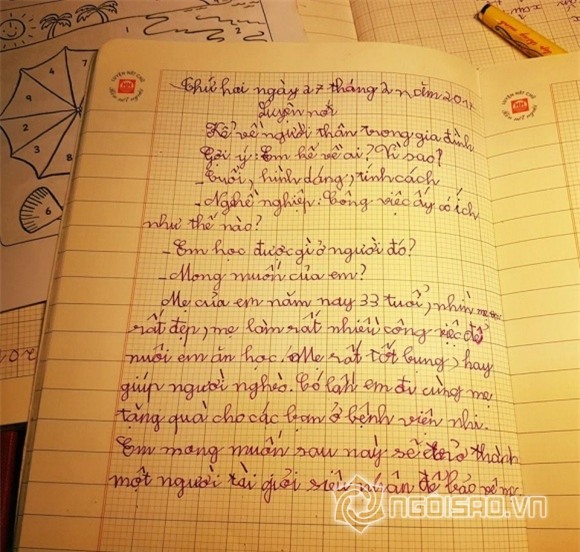 Thứ hai ngày 27 tháng 2 năm 201
Luyện nói
Kể về người thân trong gia đình
Gợi ý: Em kể về ai? Vì sao?
- Tuổi, hình dáng, tính cách
- Nghề nghiệp: Công việc ấy có ích
như thế nào?
- Em học được gì ở người đó?
- Mong muốn của em?
Mẹ của em năm nay 33 tuổi, nhìn mẹ
rất đẹp, mẹ làm rất nhiều công việc để
nuôi em ăn học. Mẹ rất tốt bụng, hay
giúp người nghèo. Có lần em đi cùng mẹ
tặng quà cho các bạn ở bệnh viện nhi.
Em mong muốn sau này sẽ trở thành
một người tài giỏi siêu nhân để bảo vệ mẹ
LUYỆN NÉT CHỮ
Rèn nết người
LUYỆN NÉT CHỮ
Rèn nết người
4
7
3
9
2
6
NGOISAO.VN